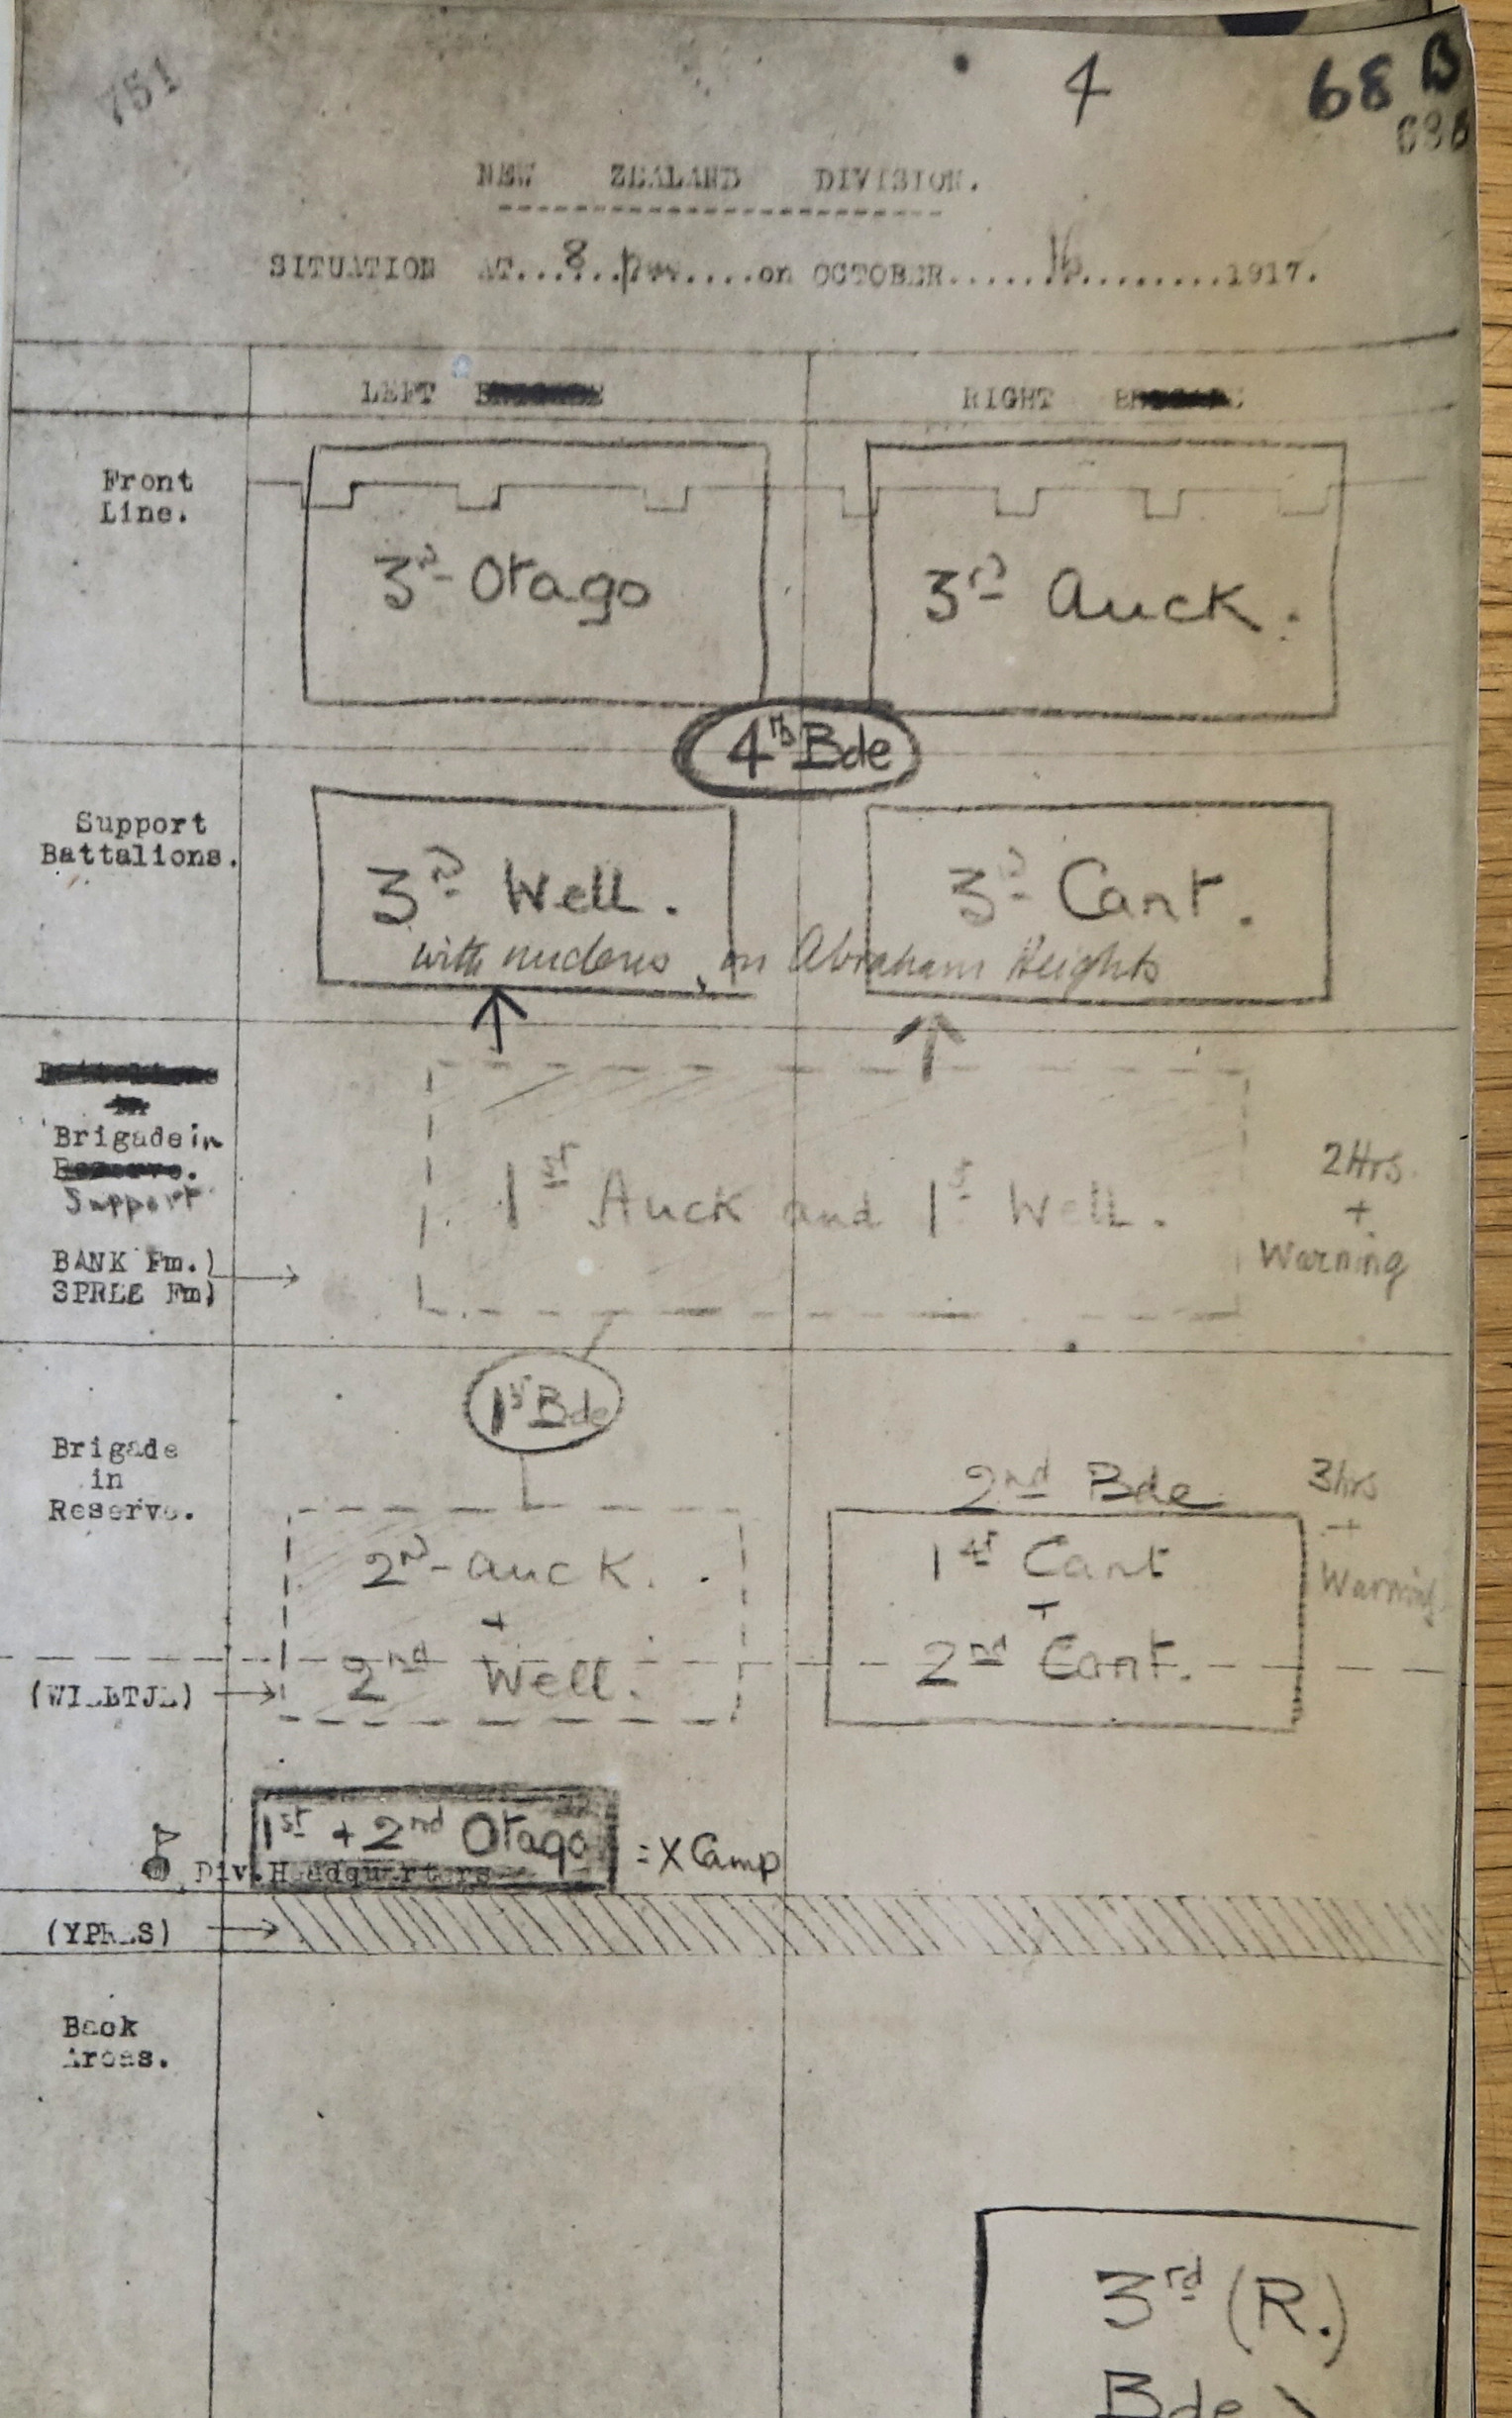 751
4
68 B
NEW ZEALAND DIVISION.
SITUATION AT...8..pm....on OCTOBER......16.........1917.
LEFT
RIGHT
Front
Line.
3rd Otago
3rd Auck.
4th Bde
Support
Battalions.
3rd Well.
3rd Cant.
with nucleus on Abraham Heights
in
Brigade in
Reserve.
Support
1st Auck and 1st Well.
2Hrs
+
Warning
BANK Fm.)
SPREE Fm)
1st Bde
Brigade
in
Reserve.
2nd Bde
3hrs
+
Warning
2nd Auck.
+
2nd Well.
1st Cant
+
2nd Cant.
(WIELTJE)
1st + 2nd Otago
= X Camp
Div. Headquarters
(YPRES)
Back
Areas.
3rd (R.)
Bde